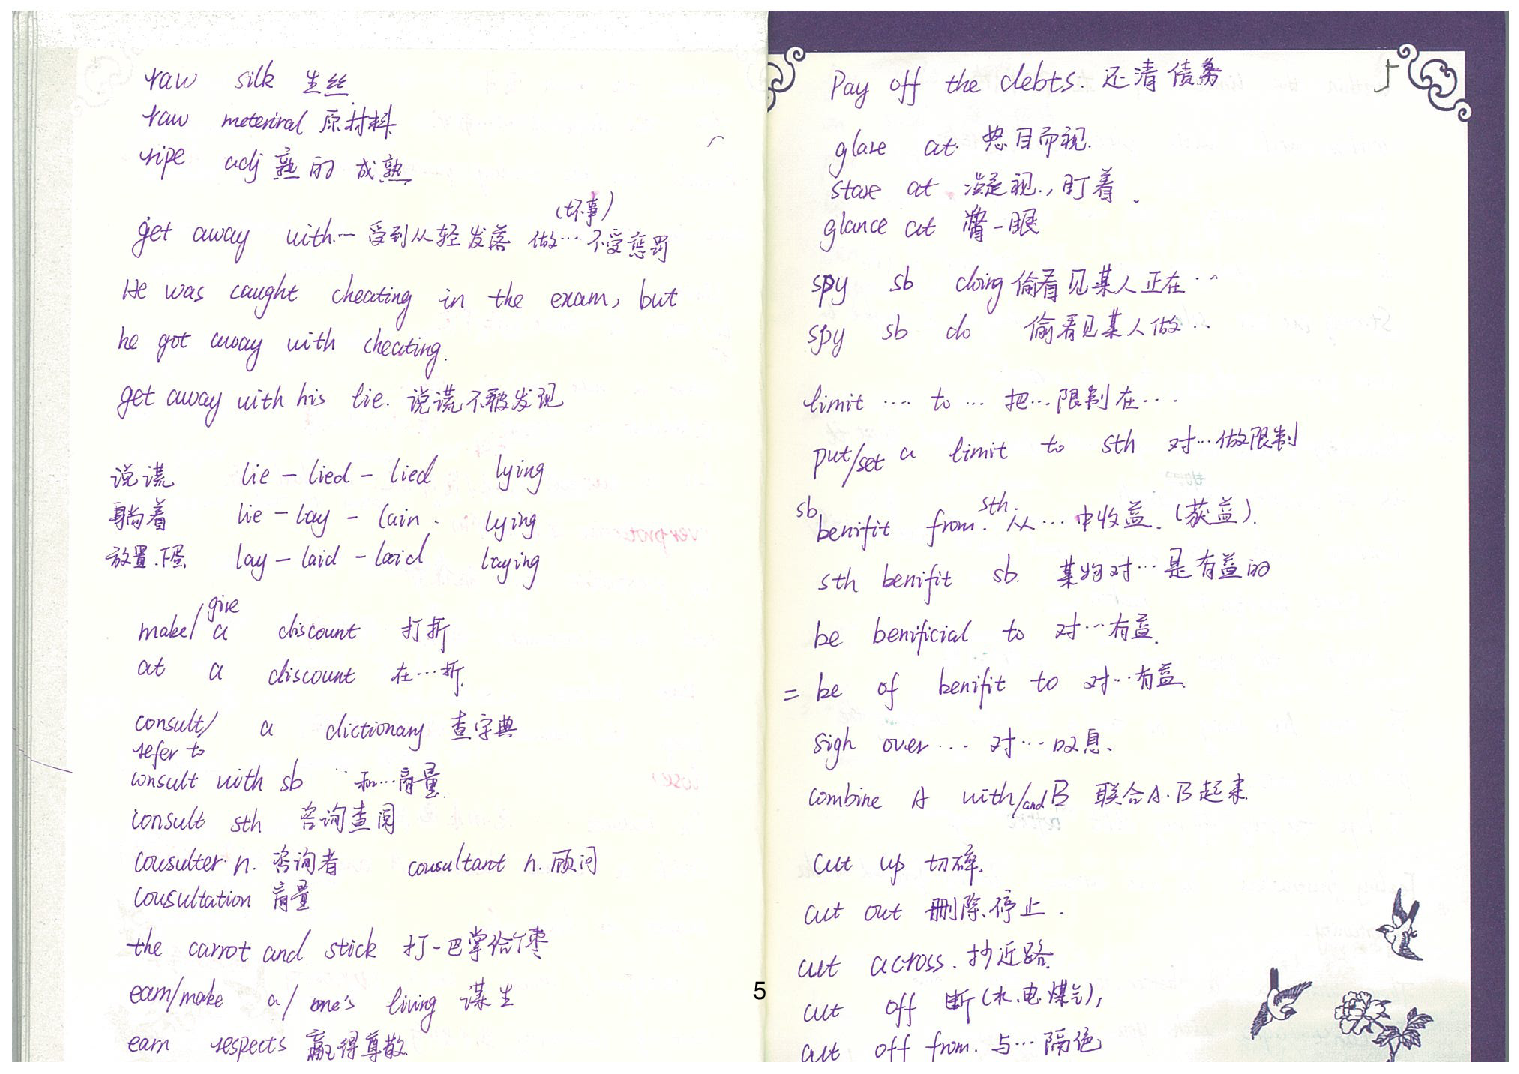 raw silk 生丝
raw meteriral 原材料
ripe adj 熟的 成熟
(坏事)
get away with — 受到从轻发落 做… 不受惩罚
He was caught cheating in the exam, but
he got away with cheating.
get away with his lie. 说谎不被发现
说谎 lie – lied – lied lying
躺着 lie – lay – lain. lying
放置.下蛋 lay – laid – laid laying
give
make/ a discount 打折
at a discount 在…折.
consult/ a dictionary 查字典
refer to
consult with sb 和…商量
consult sth 咨询查阅
consulter n. 咨询者 consultant n. 顾问
consultation 商量
the carrot and stick 打一巴掌给个枣
earn/make a/ one's living 谋生
earn respects 赢得尊敬
Pay off the debts. 还清债务
glare at 怒目而视.
stare at 凝视., 盯着.
glance at 瞥一眼
spy sb doing 偷看见某人正在…
spy sb do 偷看见某人做…
limit … to … 把…限制在…
put/set a limit to sth 对…做限制
sb benifit from sth. 从…中收益.(获益).
sth benifit sb 某物对…是有益的
be benificial to 对…有益.
= be of benifit to 对…有益.
sigh over … 对…叹息.
combine A with/and B 联合A.B起来
cut up 切碎.
cut out 删除.停止.
cut across. 抄近路
cut off 断(水.电.煤气),
cut off from. 与…隔绝
5